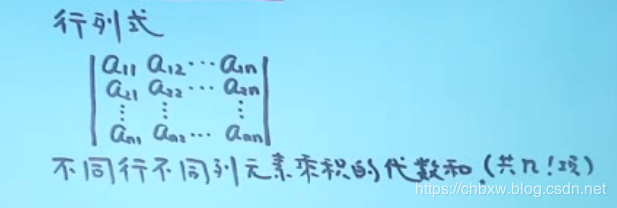 行列式
a11 a12 ··· a1n
a21 a22 ··· a2n
⋮ ⋮ ⋮
an1 an2 ··· ann
不同行不同列元素乘积的代数和(共n!项)
https://chbxw.blog.csdn.net